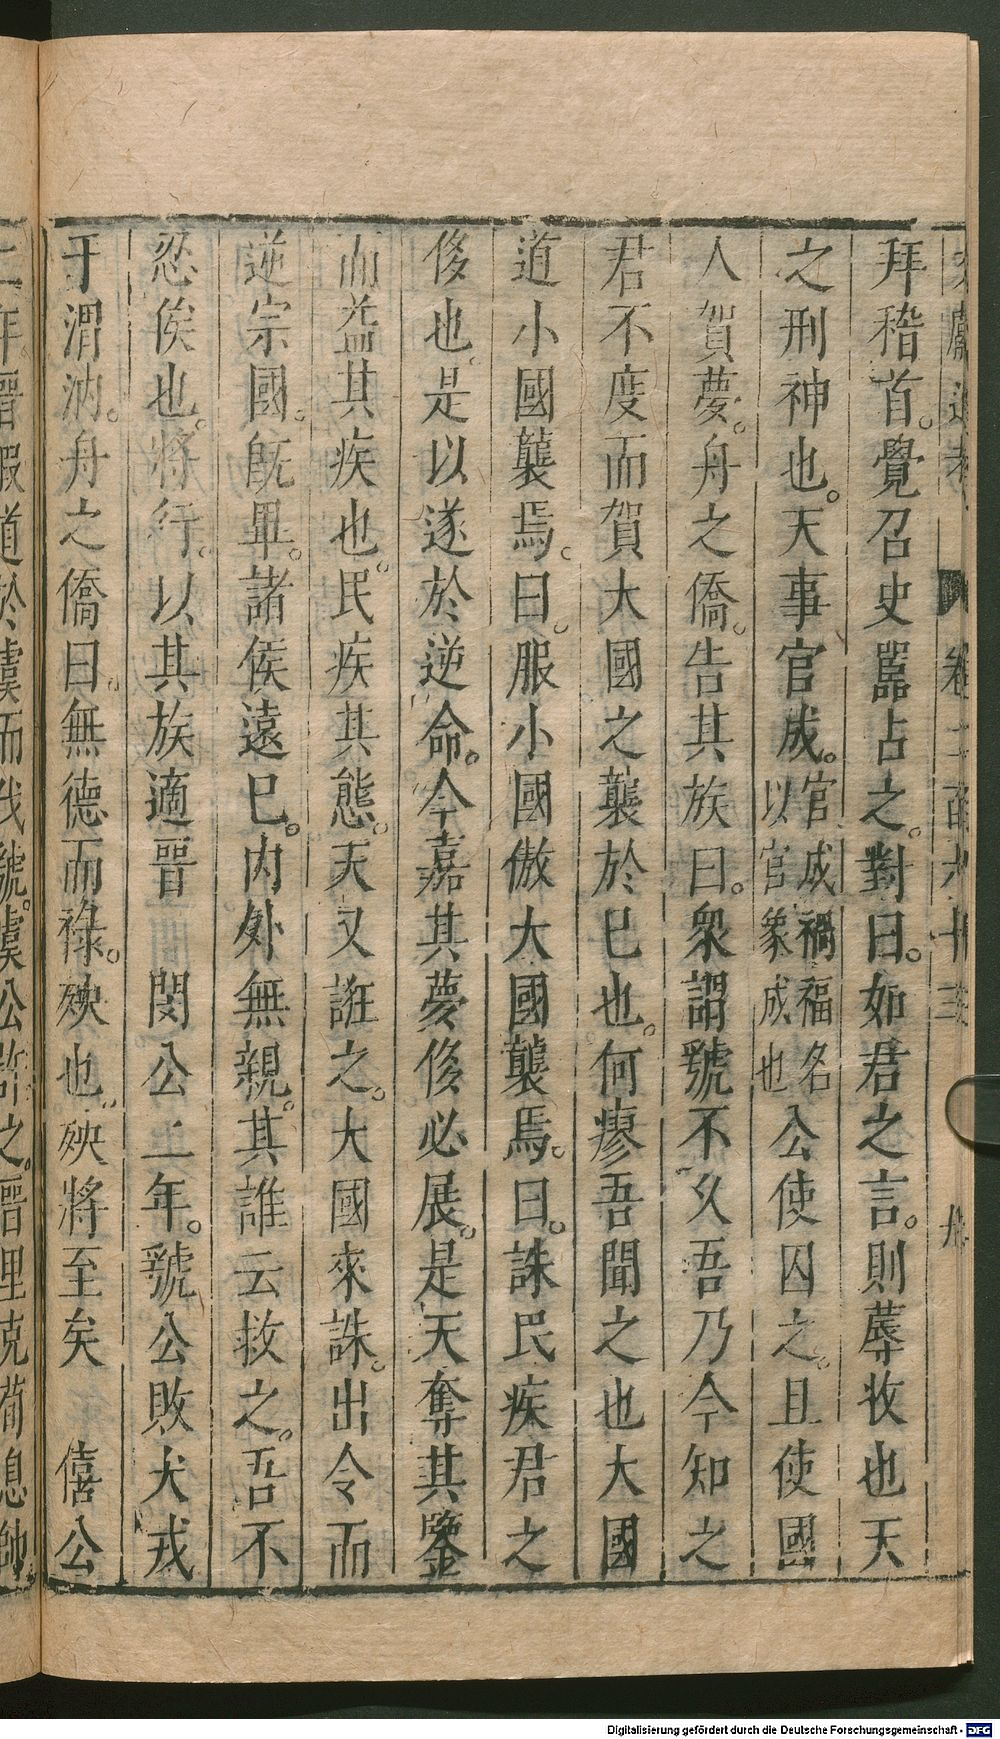 拜稽首。覺召史嚚占之。對曰。如君之言。則蓐收也天
之刑神也。天事官成。官成禍福名以官象成也公使囚之。且使國
人賀夢。舟之僑。告其族曰。衆謂虢不久吾乃今知之
君不度而賀大國之襲於已也。何瘳吾聞之也大國
道小國襲焉。曰。服小國傲大國襲焉。曰。誅民疾君之
侈也。是以遂於逆命。今嘉其夢侈必展。是天奪其鑒
而益其疾也。民疾其態。天又誑之。大國來誅。出令而
逆宗國。旣畢。諸侯遠已。内外無親。其誰云救之。吾不
忍俟也。將行。以其族適晉　閔公二年。虢公敗犬戎
于渭汭。舟之僑曰。無德而祿。殃也。殃將至矣　僖公
二年晉假道於虞而伐虢。虞公許之。晉里克荀息帥
卷二百六十三
Digitalisierung gefördert durch die Deutsche Forschungsgemeinschaft - DFG